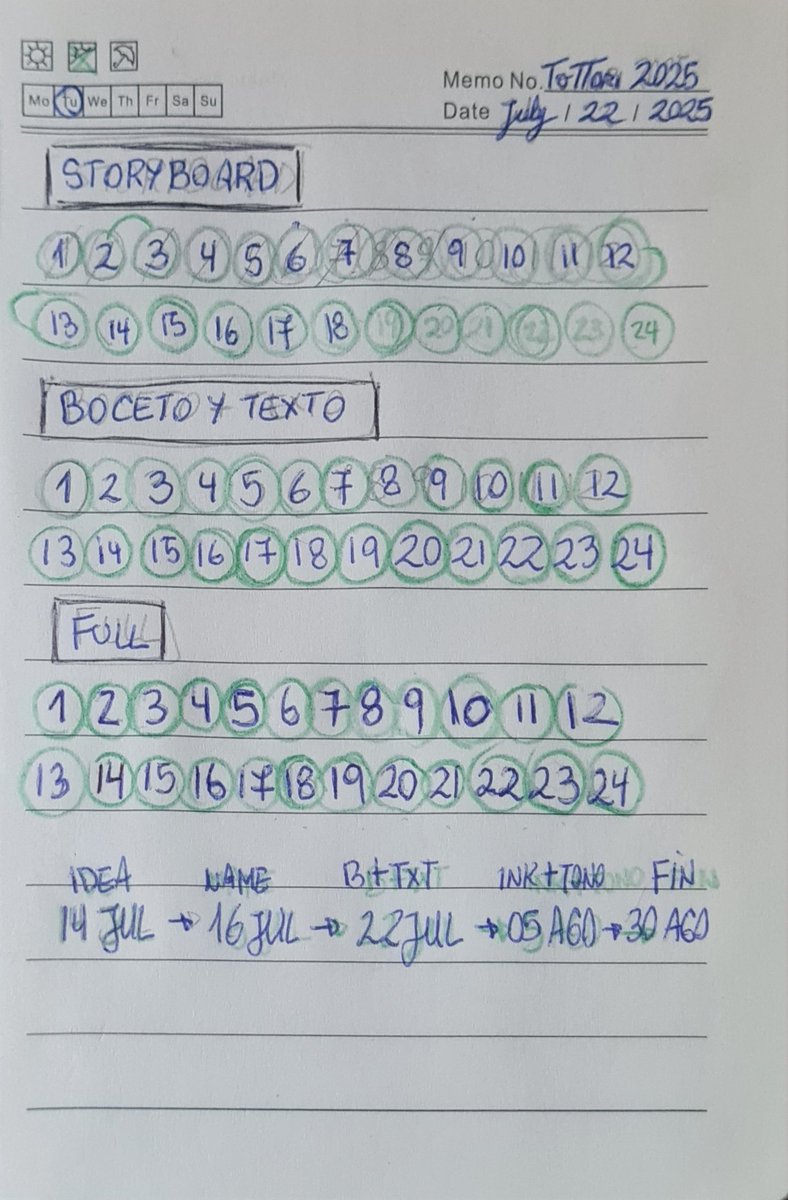 Memo No. ToTTori 2025
Mo Tu We Th Fr Sa Su
Date July / 22 / 2025
STORYBOARD
1 2 3 4 5 6 7 8 9 10 11 12
13 14 15 16 17 18 19 20 21 22 23 24
BOCETO Y TEXTO
1 2 3 4 5 6 7 8 9 10 11 12
13 14 15 16 17 18 19 20 21 22 23 24
FULL
1 2 3 4 5 6 7 8 9 10 11 12
13 14 15 16 17 18 19 20 21 22 23 24
IDEA NAME B+TXT INK+TONO FIN
14 JUL → 16 JUL → 22 JUL → 05 AGO → 30 AGO